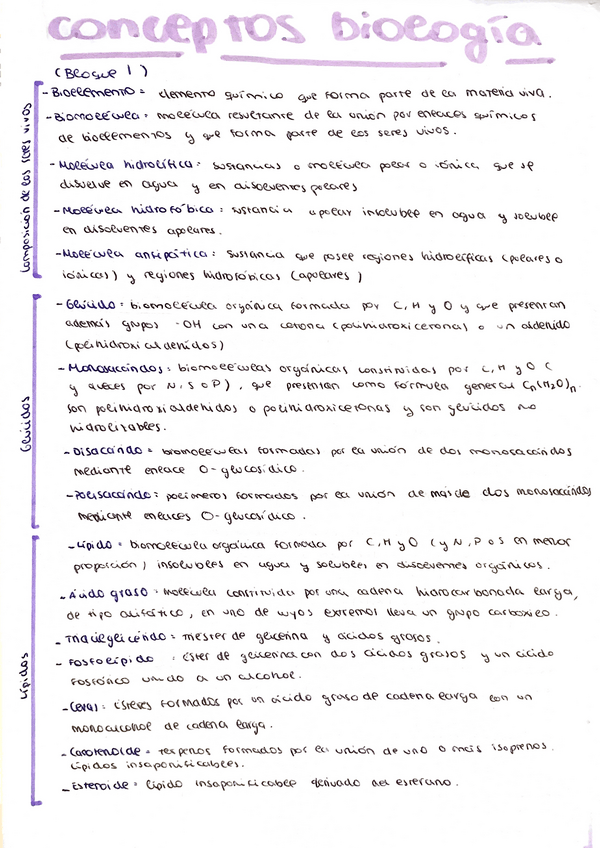 conceptos biología
(Bloque 1)
Composición de los seres vivos
- Bioelemento = elemento químico que forma parte de la materia viva.
- Biomolécula = molécula resultante de la unión por enlaces químicos
de bioelementos y que forma parte de los seres vivos.
- Molécula hidrolífica = sustancias o molécula polar o iónica, que se
disuelve en agua y en disolventes polares
- Molécula hidrofóbica = sustancia apolar insoluble en agua y soluble
en disolventes apolares.
- Molécula antipática = Sustancia que posee regiones hidrolíficas (polares o
iónicas) y regiones hidrofóbicas (apolares)
Glúcidos
- Glúcido = biomolécula orgánica formada por C, H y O y que presentan
además grupos -OH con una cetona (polihidroxicetona) o un aldehído
(polihidroxialdehídos)
- Monosacáridos = biomoléculas orgánicas constituidas por C, H y O (
y a veces por N, S o P), que presentan como fórmula general Cn(H2O)n.
son polihidroxialdehídos o polihidroxicetonas y son glúcidos no
hidrolizables.
- Disacárido = biomoléculas formadas por la unión de dos monosacáridos
mediante enlace O-glucosídico.
- Polisacárido = polímeros formados por la unión de más de dos monosacáridos
mediante enlaces O-glucosídico.
Lípidos
- Lípido = biomolécula orgánica formada por C, H y O (y N, P o S en menor
proporción) insolubles en agua y solubles en disolventes orgánicos.
- Ácido graso = molécula constituida por una cadena hidrocarbonada larga,
de tipo alifático, en uno de cuyos extremos lleva un grupo carboxílico.
- Triacilglicérido = triéster de glicerina y ácidos grasos.
- Fosfolípido = éster de glicerina con dos ácidos grasos y un ácido
fosfórico unido a un alcohol.
- Ceras = ésteres formados por un ácido graso de cadena larga con un
monoalcohol de cadena larga.
- Carotenoide = terpenos formados por la unión de uno o más isoprenos.
Lípidos insaponificables.
- Esteroide = lípido insaponificable derivado del esterano.